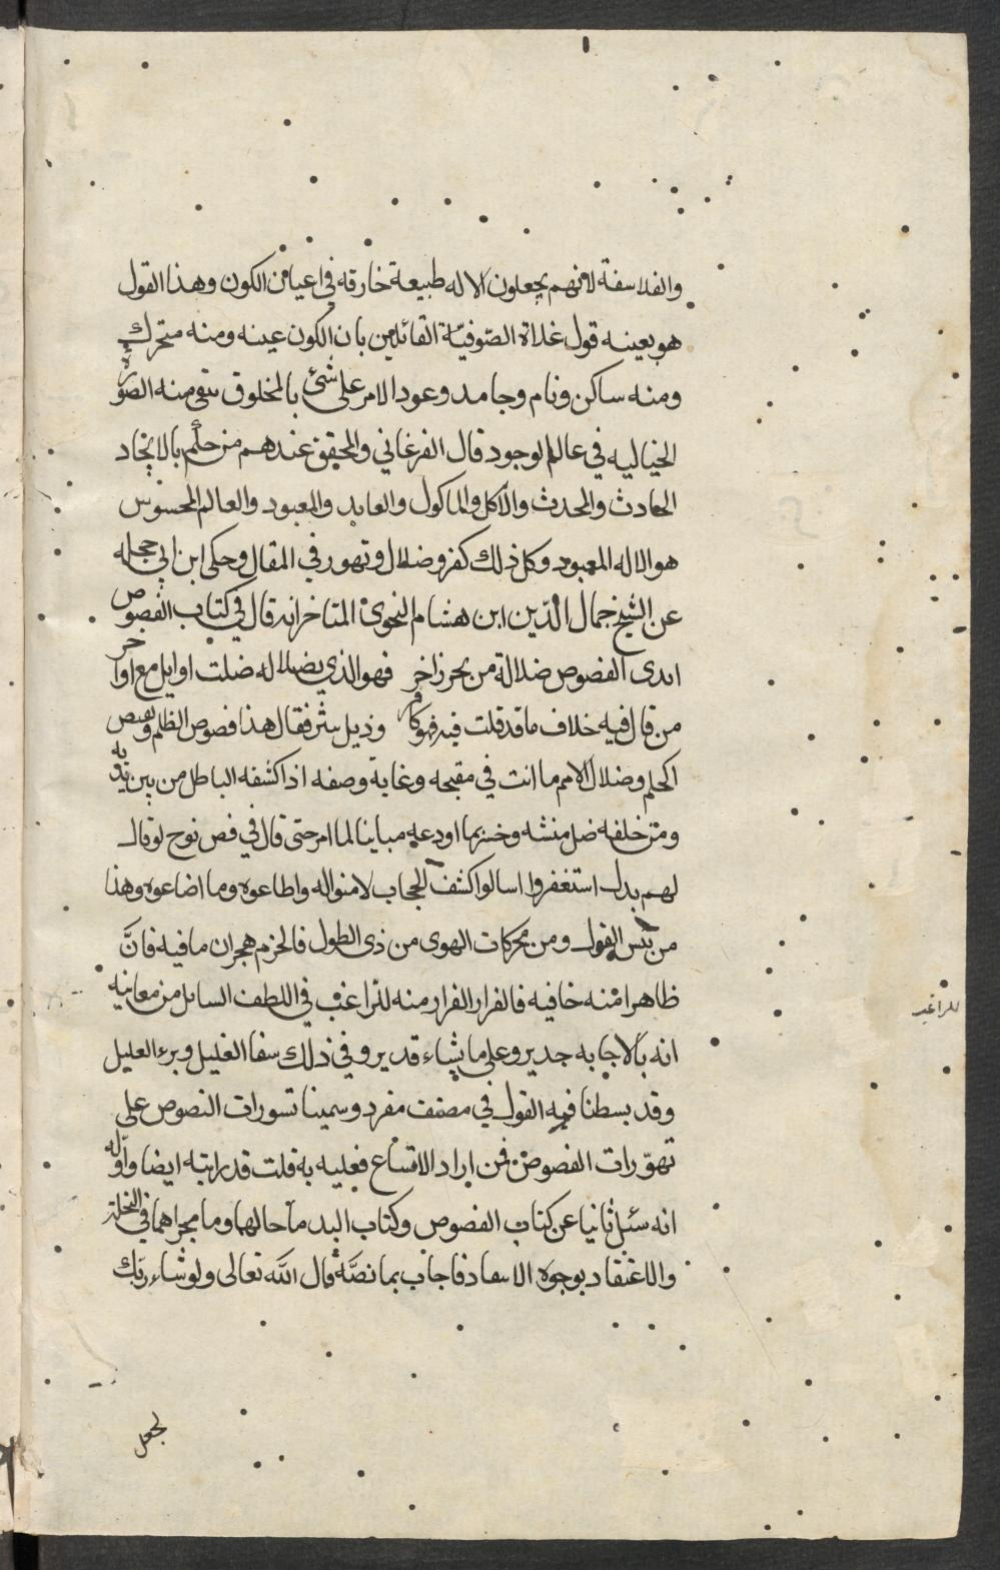 والفلاسفة لانهم يجعلون الاله طبيعة خارقه في اعيان الكون وهذا القول
هو بعينه قول غلاة الصّوفيّة القائلين بان الكون عينه ومنه متحرك
ومنه ساكن ونام وجامد وعود الامر على شئ بالمخلوق تنقى منه الصّورة
الخياليه في عالم الوجود قال الفرغاني والمحقق عندهم من حكم بالاتحاد
الحادث والمحدث والآكل والماكول والعابد والمعبود والعالم المحسوس
هو الاله المعبود وكل ذلك كفر وضلال وتهور في المقال وحكى ابن ابي حجله
عن الشيخ جمال الدّين ابن هشام النحوي المتاخر انه قال في كتاب الفصوص
ابدى الفصوص ضلالة من بحر زاخر فهو الذي بضلاله ضلت اوايل مع اواخر
من قال فيه خلاف ما قد قلت فيه فهو كافر وذيل بنثر فقال هذا فصوص الظلم ونقيص
الحلم وضلال الامم ما انت في مقبحه وغاية وصفه اذ اكشفه الباطل من بين يديه
ومن خلفه ضل منشه وخسر بما اودعه مباينا لما امر حتى قال في فص نوح لو قال
لهم بدل استغفروا اسالوا كشف الحجاب لامنوا له واطاعوه وما اضاعوه وهذا
من بئس القول ومن محركات الهوى من ذي الطول فالحزم هجران ما فيه فانَّ
ظاهرا منه خافيه فالفرار الفرار منه للراغب في اللطف السايل من معانيه
للراغب
انه بالاجابه جدير وعلى ما يشاء قدير وفي ذلك سفا الغليل وبرء العليل
وقد بسطنا فيه القول في مصنف مفرد وسمينا تسورات النصوص على
تهوّرات الفصوص فمن اراد الاتساع فعليه به قلت قد رايته ايضا واوله
انه سئل ثانيا عن كتاب الفصوص وكتاب البد ما حالهما وما مجراهما في النحلة
والاعتقاد بوجوه الاسعاد فاجاب بما نصّه قال الله تعالى ولو شاء ربك
لجعل